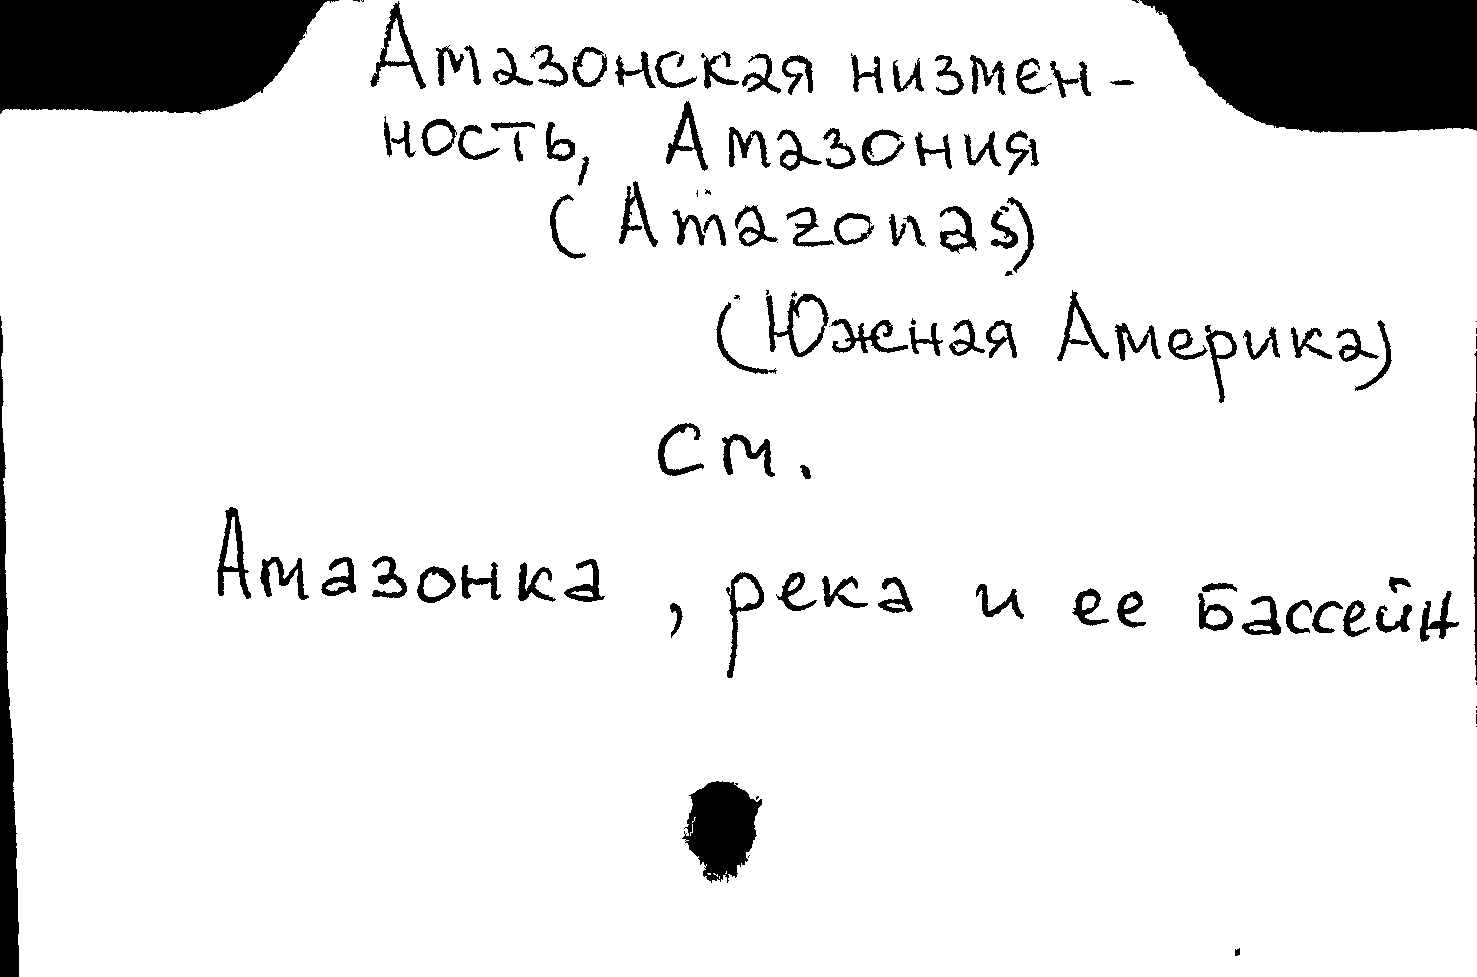 Амазонская низмен-
ность, Амазония
(Amazonas)
(Южная Америка)
см.
Амазонка, река и ее бассейн